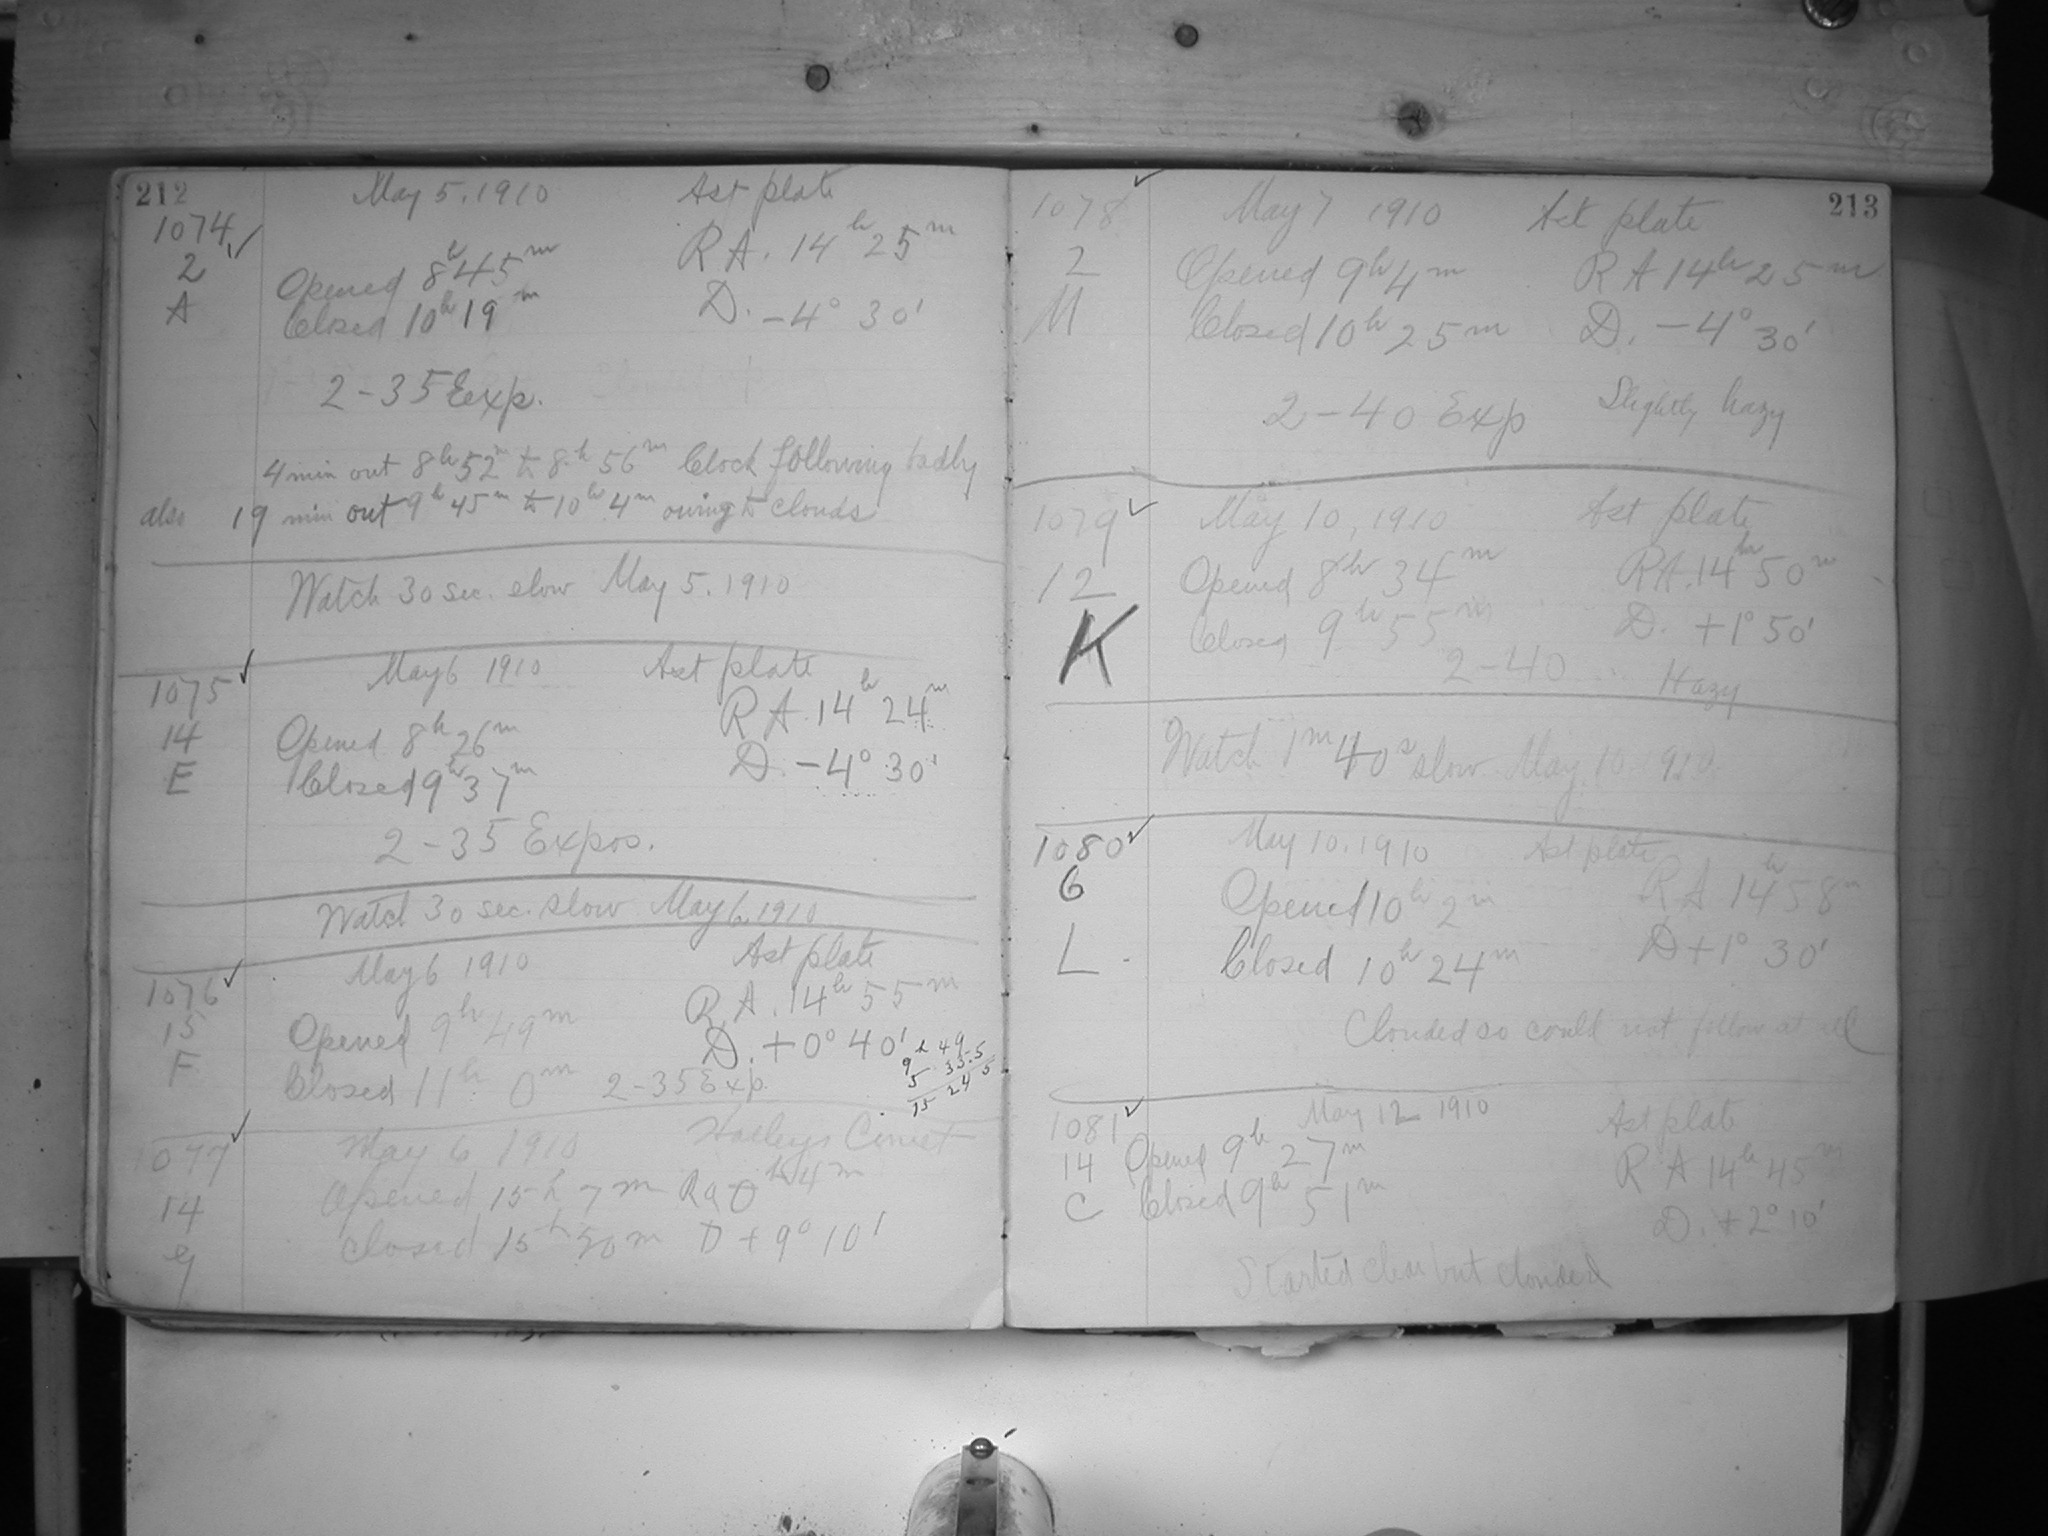 212
May 5, 1910 Ast plate
1074 ✓
2
A
RA. 14h 25m
Opened 8h 45m
Closed 10h 19m
D. -4° 30'
2-35 Exp.
4 min out 8h 52m to 8h 56m Clock following badly
also 19 min out 9h 45m to 10h 4m owing to clouds
Watch 30 sec. slow May 5. 1910
1075 ✓
May 6 1910 Ast plate
14
E
RA. 14h 24m
Opened 8h 26m
Closed 9h 37m
D. -4° 30'
2-35 Expos.
Watch 30 sec. slow May 6, 1910
1076 ✓
May 6 1910 Ast plate
15
F
RA. 14h 55m
Opened 9h 49m
D. +0° 40'
Closed 11h 0m 2-35 Exp.
9h 49
5 35.5
15 24 5
1077 ✓
May 6 1910 Halleys Comet
14
Opened 15h 7m Ra 0h 4m
Closed 15h 50m D + 9° 10'
213
1078 ✓
May 7 1910 Ast plate
2
M
Opened 9h 4m RA 14h 25m
Closed 10h 25m D. -4° 30'
2-40 Exp Slightly hazy
1079 ✓
May 10, 1910 Ast plate
12
K
Opened 8h 34m RA. 14h 50m
Closed 9h 55m D. +1° 50'
2-40 Hazy
Watch 1m 40s slow May 10. 1910
1080 ✓
May 10. 1910 Ast plate
6
L.
Opened 10h 2m RA 14h 58m
Closed 10h 24m D +1° 30'
Clouded so could not follow at all
1081 ✓
May 12 1910 Ast plate
14
C
Opened 9h 27m RA 14h 45m
Closed 9h 51m D. +2° 10'
Started clear but clouded